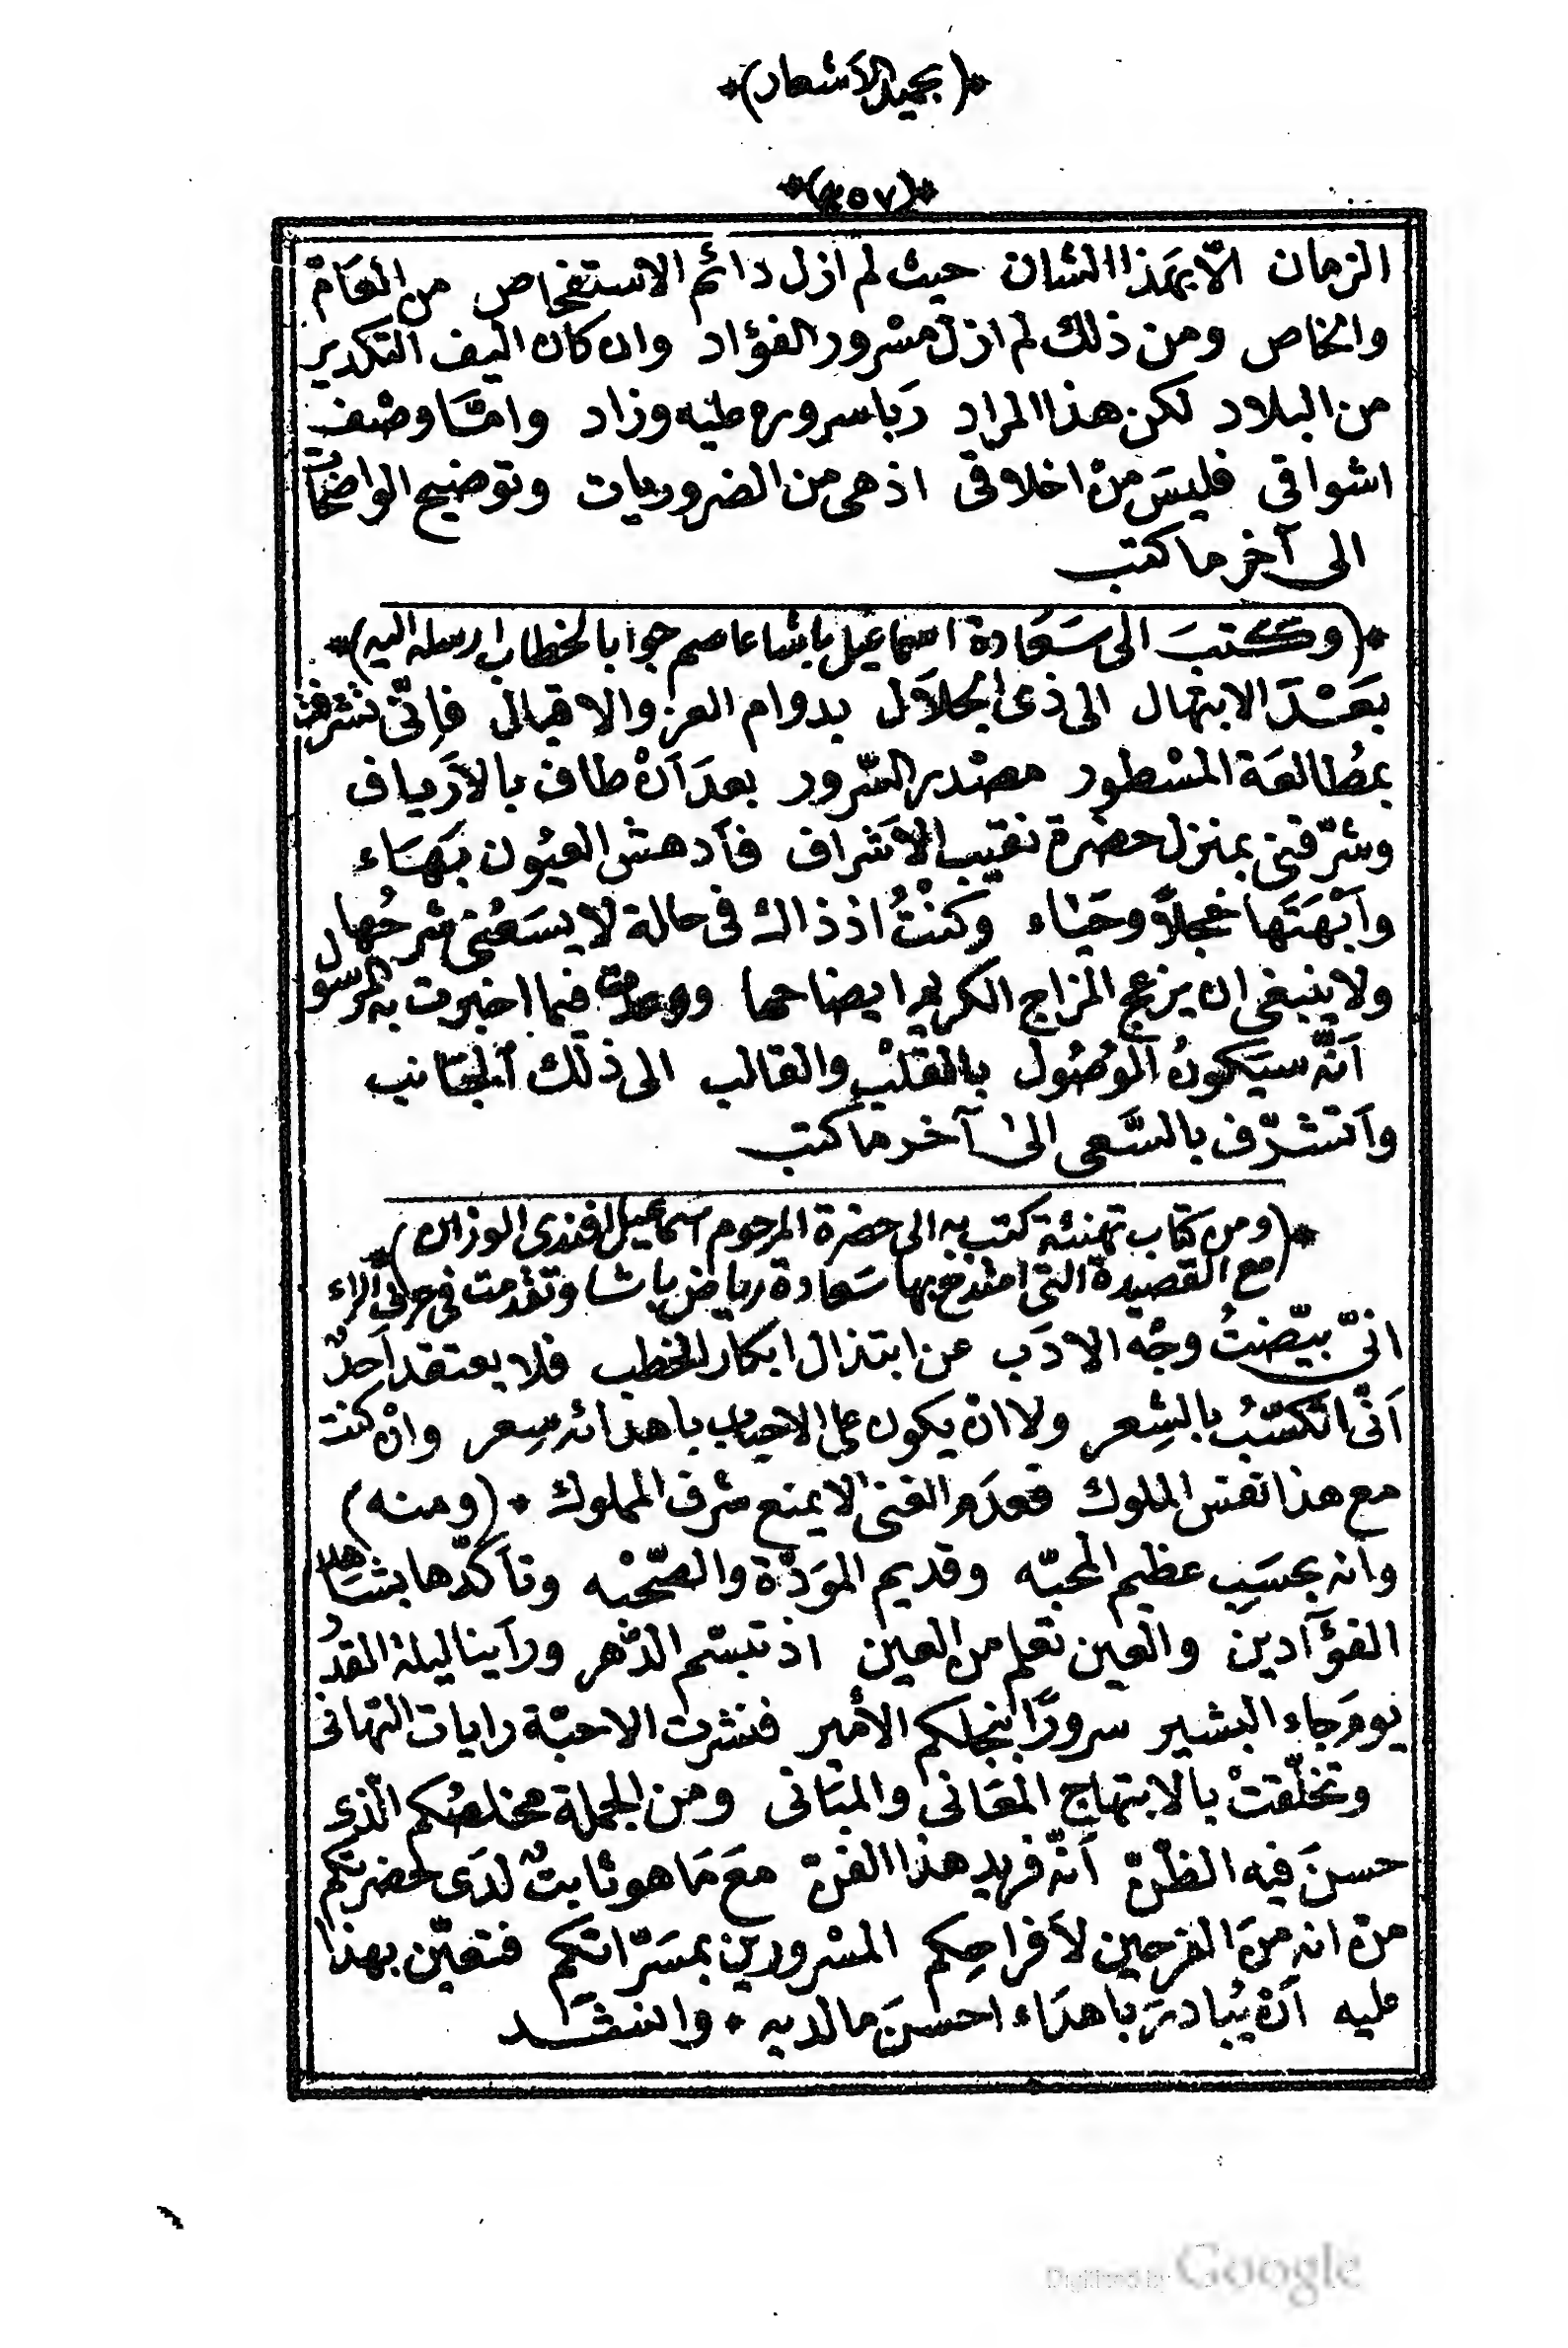 *(بحميد الأشعار)*
*(٤٥٧)*
الزمان الّا بهَذا الشان حيث لم ازل دائم الاستفحاص من العَامْ
والخاص ومن ذلك لم ازل مسْرور الفؤاد وان كان اليف التكدير
من البلاد لكن هذا المراد رَبا سروره عليه وزاد وامّا وصْف
اشواقي فليسَ منْ اخلاقى اذ هى من الضروريات وتوضيح الواضحات
الى آخر ما كتب
*(وكتبَ الى سَعَادة اسماعيل باشا عاصم جوابا لخطاب ارسله اليه)*
بَعْدَ الابتهال الى ذى الجلاَل بدوام العز والاقبال فإنّى تشرفت
بمطُالعَة المسْطور مصْدر السّرور بعدَ اَنْ طاف بالاَرياف
وشرّفنى بمنزل حضْرة نقيب الاَشراف فاَدهش العيُون بَهَاء
واَبْهَتَها خجلاً وحَيَاء وَكنْتُ اذ ذاك فى حالة لا يسَعُنى شرحُها
ولا ينبغى ان يزعج المزاج الكريم ايضاحها فيما اخبرت به المرسول
اَنَّه سيَكونُ الوصُول بالقلْب والقالب الى ذلك الجَانب
واَتشرّف بالسَّعى الىٰ آخر ما كتب
*(ومن كتاب تهنئة كتب به الى حضرة المرحوم اسماعيل افندى الوزان)*
(مع القصيدة التى امتدح بها سَعادة رياض باشا وتقدمت فى حرف الراء)
انّى بيّضتُ وجْه الادَب عن ابتذال ابكار الخطب فلا يعتقد اَحدٌ
اَنّى اتكسّبُ بالشِعر ولا انْ يكون على الاحباب باهدائه سِعر وانْ كنت
مع هذا نفس الملوك فعدَم الغنى لا يمنع شرف المملوك * (ومنه)
واَنه بحسَب عظيم المحبّه وقديم الموَدّة والصّحبْه وتاَكدّها بشَاهد
الفؤآدينَ والعين تعلم من العين اذ تبسّم الدّهر ورأينا ليلة القدْر
يومَ جاء البشير سرورًا بنجلكم الأمير فنشرت الاحبّة رايات التهانى
وتخلّقتْ بالابتهاج المعَانى والمبَانى ومن الجملة مخلصُكم الّذى
حسنَ فيه الظنّ اَنّه فريد هذا الفنّ معَ مَا هو ثابتٌ لدَى حضرتكم
منْ انه منَ الفرحين لاَفراحِكم المسْرورين بمسَرّاتكم فتعيّن بهذا
عليه اَنْ يُبادرَ باهدَاء احسنَ ما لديه * وانشد
Digitized by Google